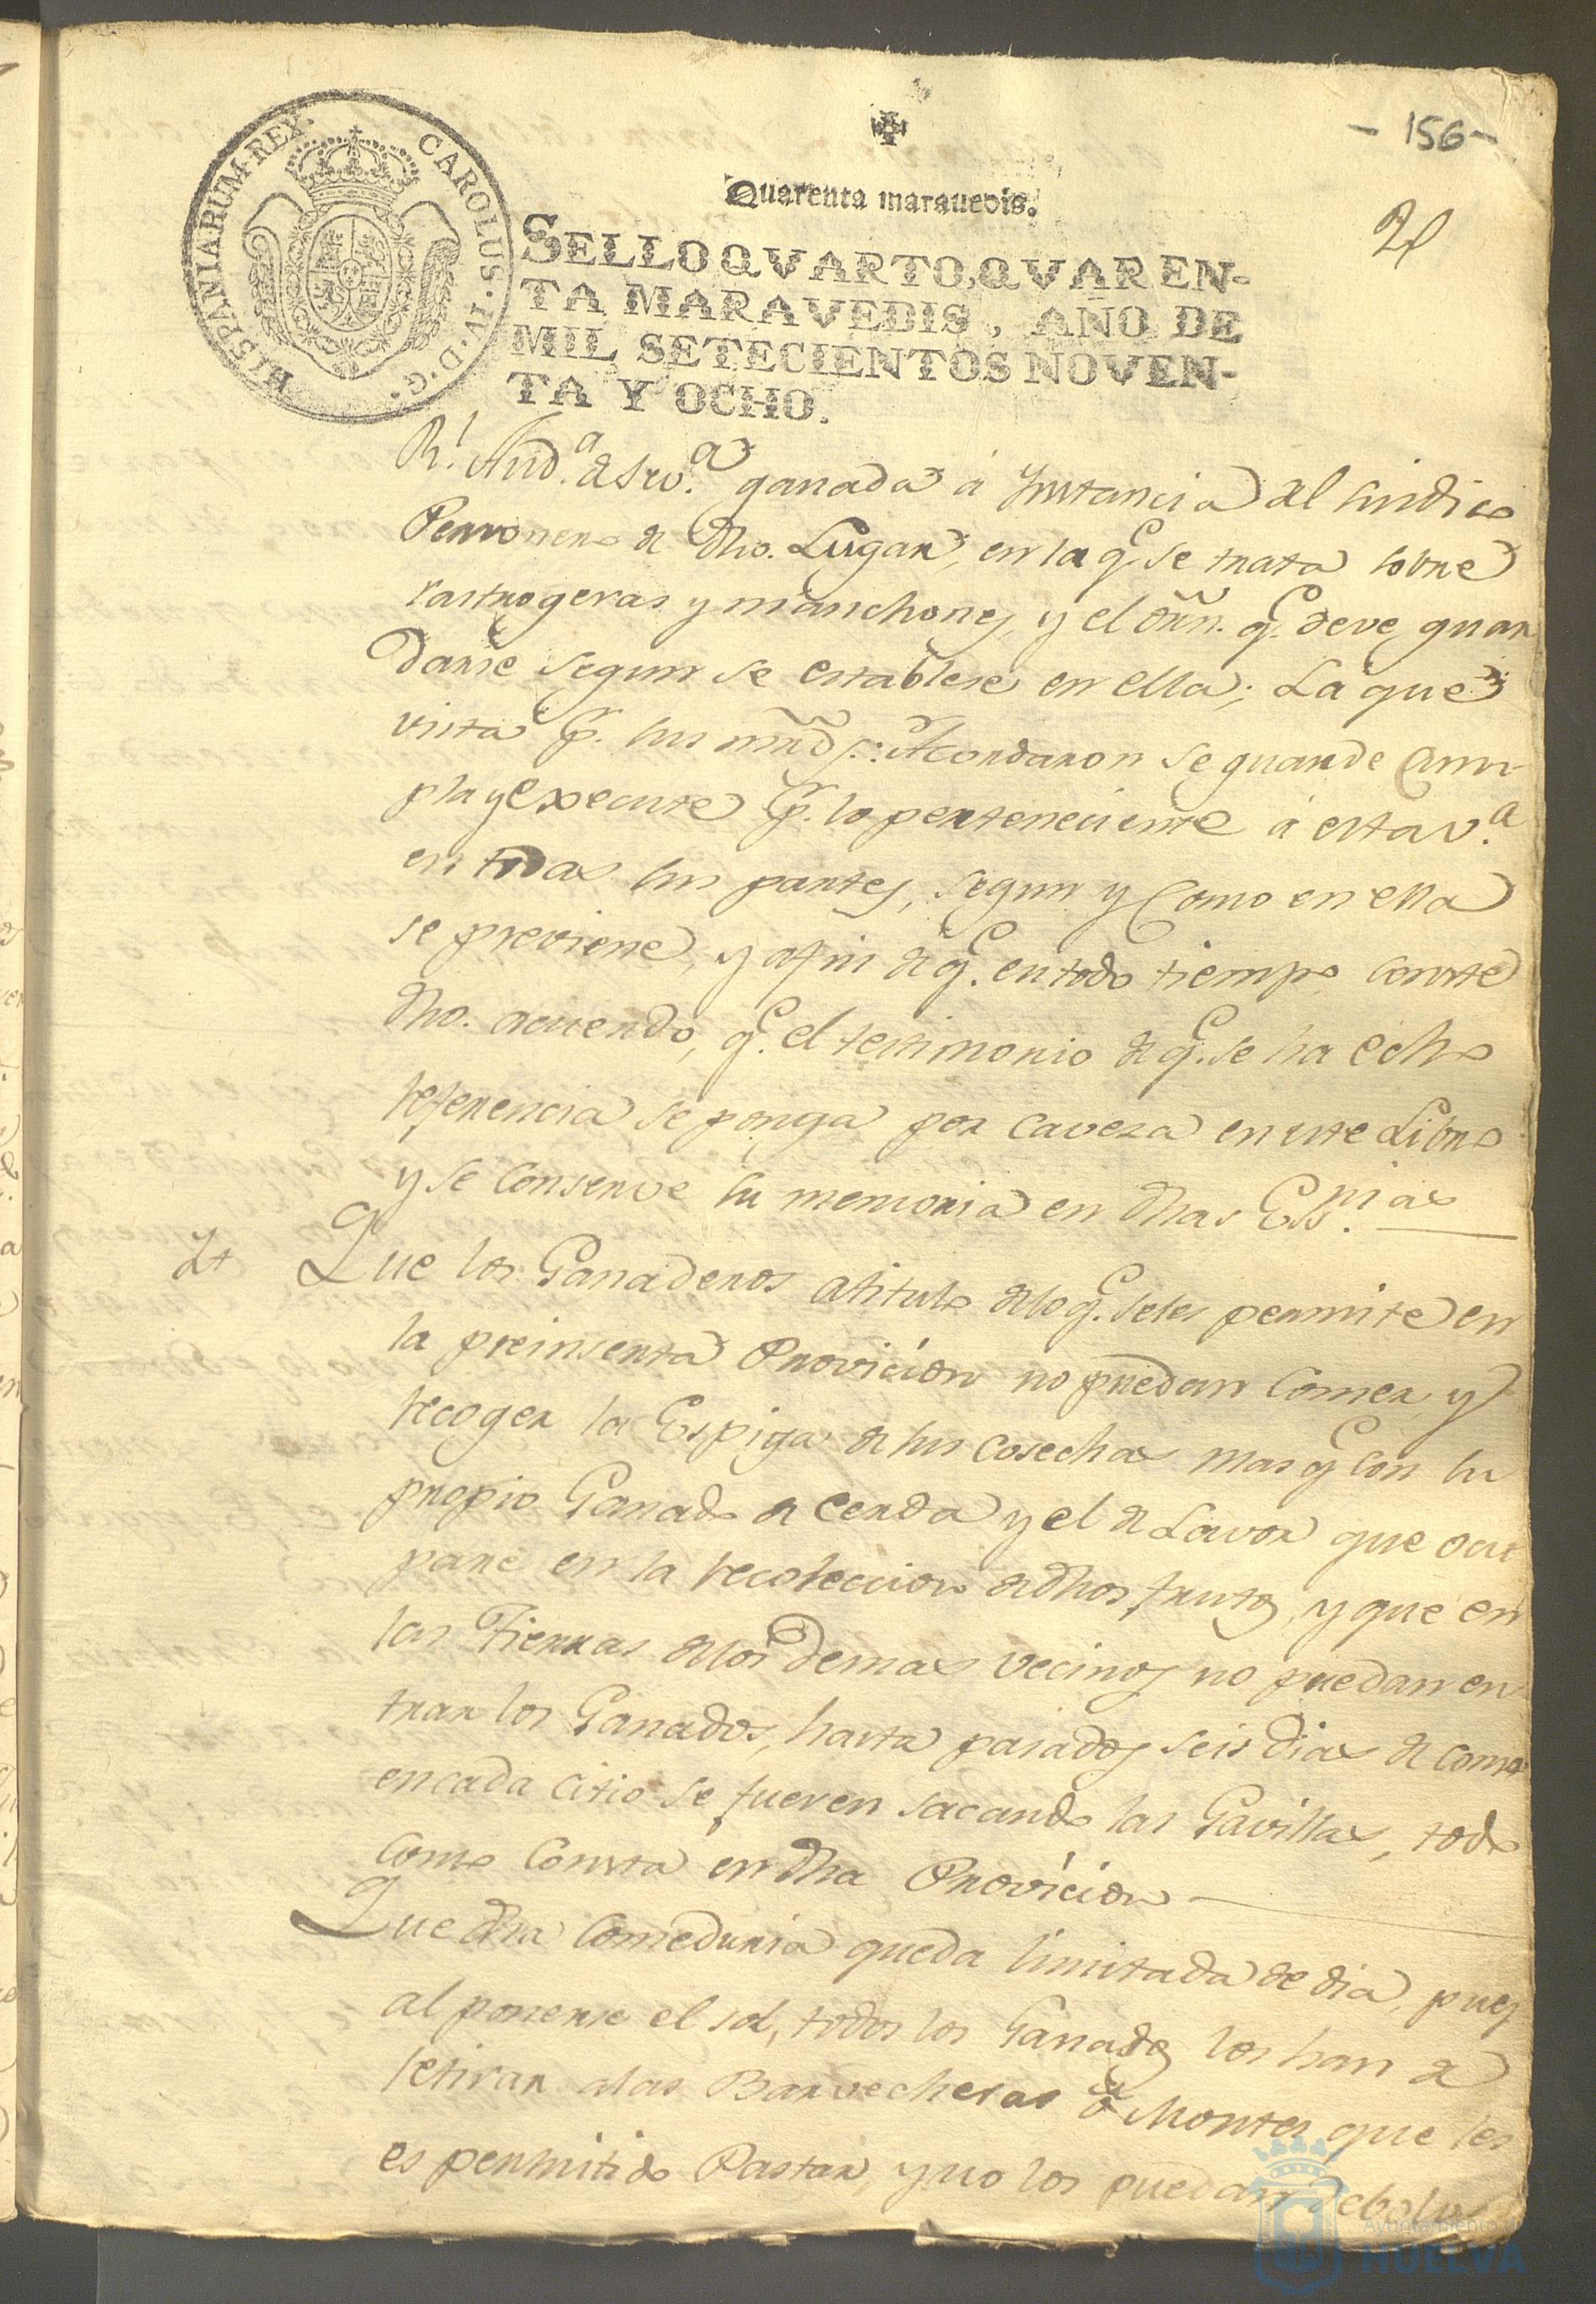 - 156 -
HISPANIARUM·REX· CAROLUS·IV·D·G·
Quarenta marauedis.
SELLO QVARTO, QVAREN-
TA MARAVEDIS, AÑO DE
MIL SETECIENTOS NOVEN-
TA Y OCHO.
Rl. Auda. de Seva. ganada á Ynstancia del sindico
Personero de dho. Lugar, en la qe. se trata sobre
rastrogeras y manchones, y el orñ. qe. deve guar
darse segun se establese en ella; La que
vista pr. sus mrds.: Acordaron se guarde Cum
pla y Execute pr. lo perteneciente á esta va.
en todas sus partes, segun y Como en ella
se previene, y afin de qe. en todo tiempo conste
dho. acuerdo, qe. el testimonio de qe. se ha echo
referencia se ponga por caveza en este Libro
y se conserve su memoria en dhas Essnias
Que los Ganaderos atitulo delo qe. seles permite en
la preinserta Provicion no puedan comer y
recoger la Espiga de sus cosechas mas qe con su
propio Ganado de cerda y el de Lavor que ocu
pare en la recoleccion de dhos frutos, y que en
las Tierras delos demas vecinos no puedan en
trar los Ganados, hasta pasados seis dias de como
en cada citio se fueren sacando las Gavillas, todo
como consta en dha Provicion
Que dha Comeduria queda limitada de dia, pues
al ponerse el sol, todos los Ganados los han de
retirar alas Barvecheras ô Montes que les
es permitido Pastar, y no los puedan debolv
Ayuntamiento de
HUELVA